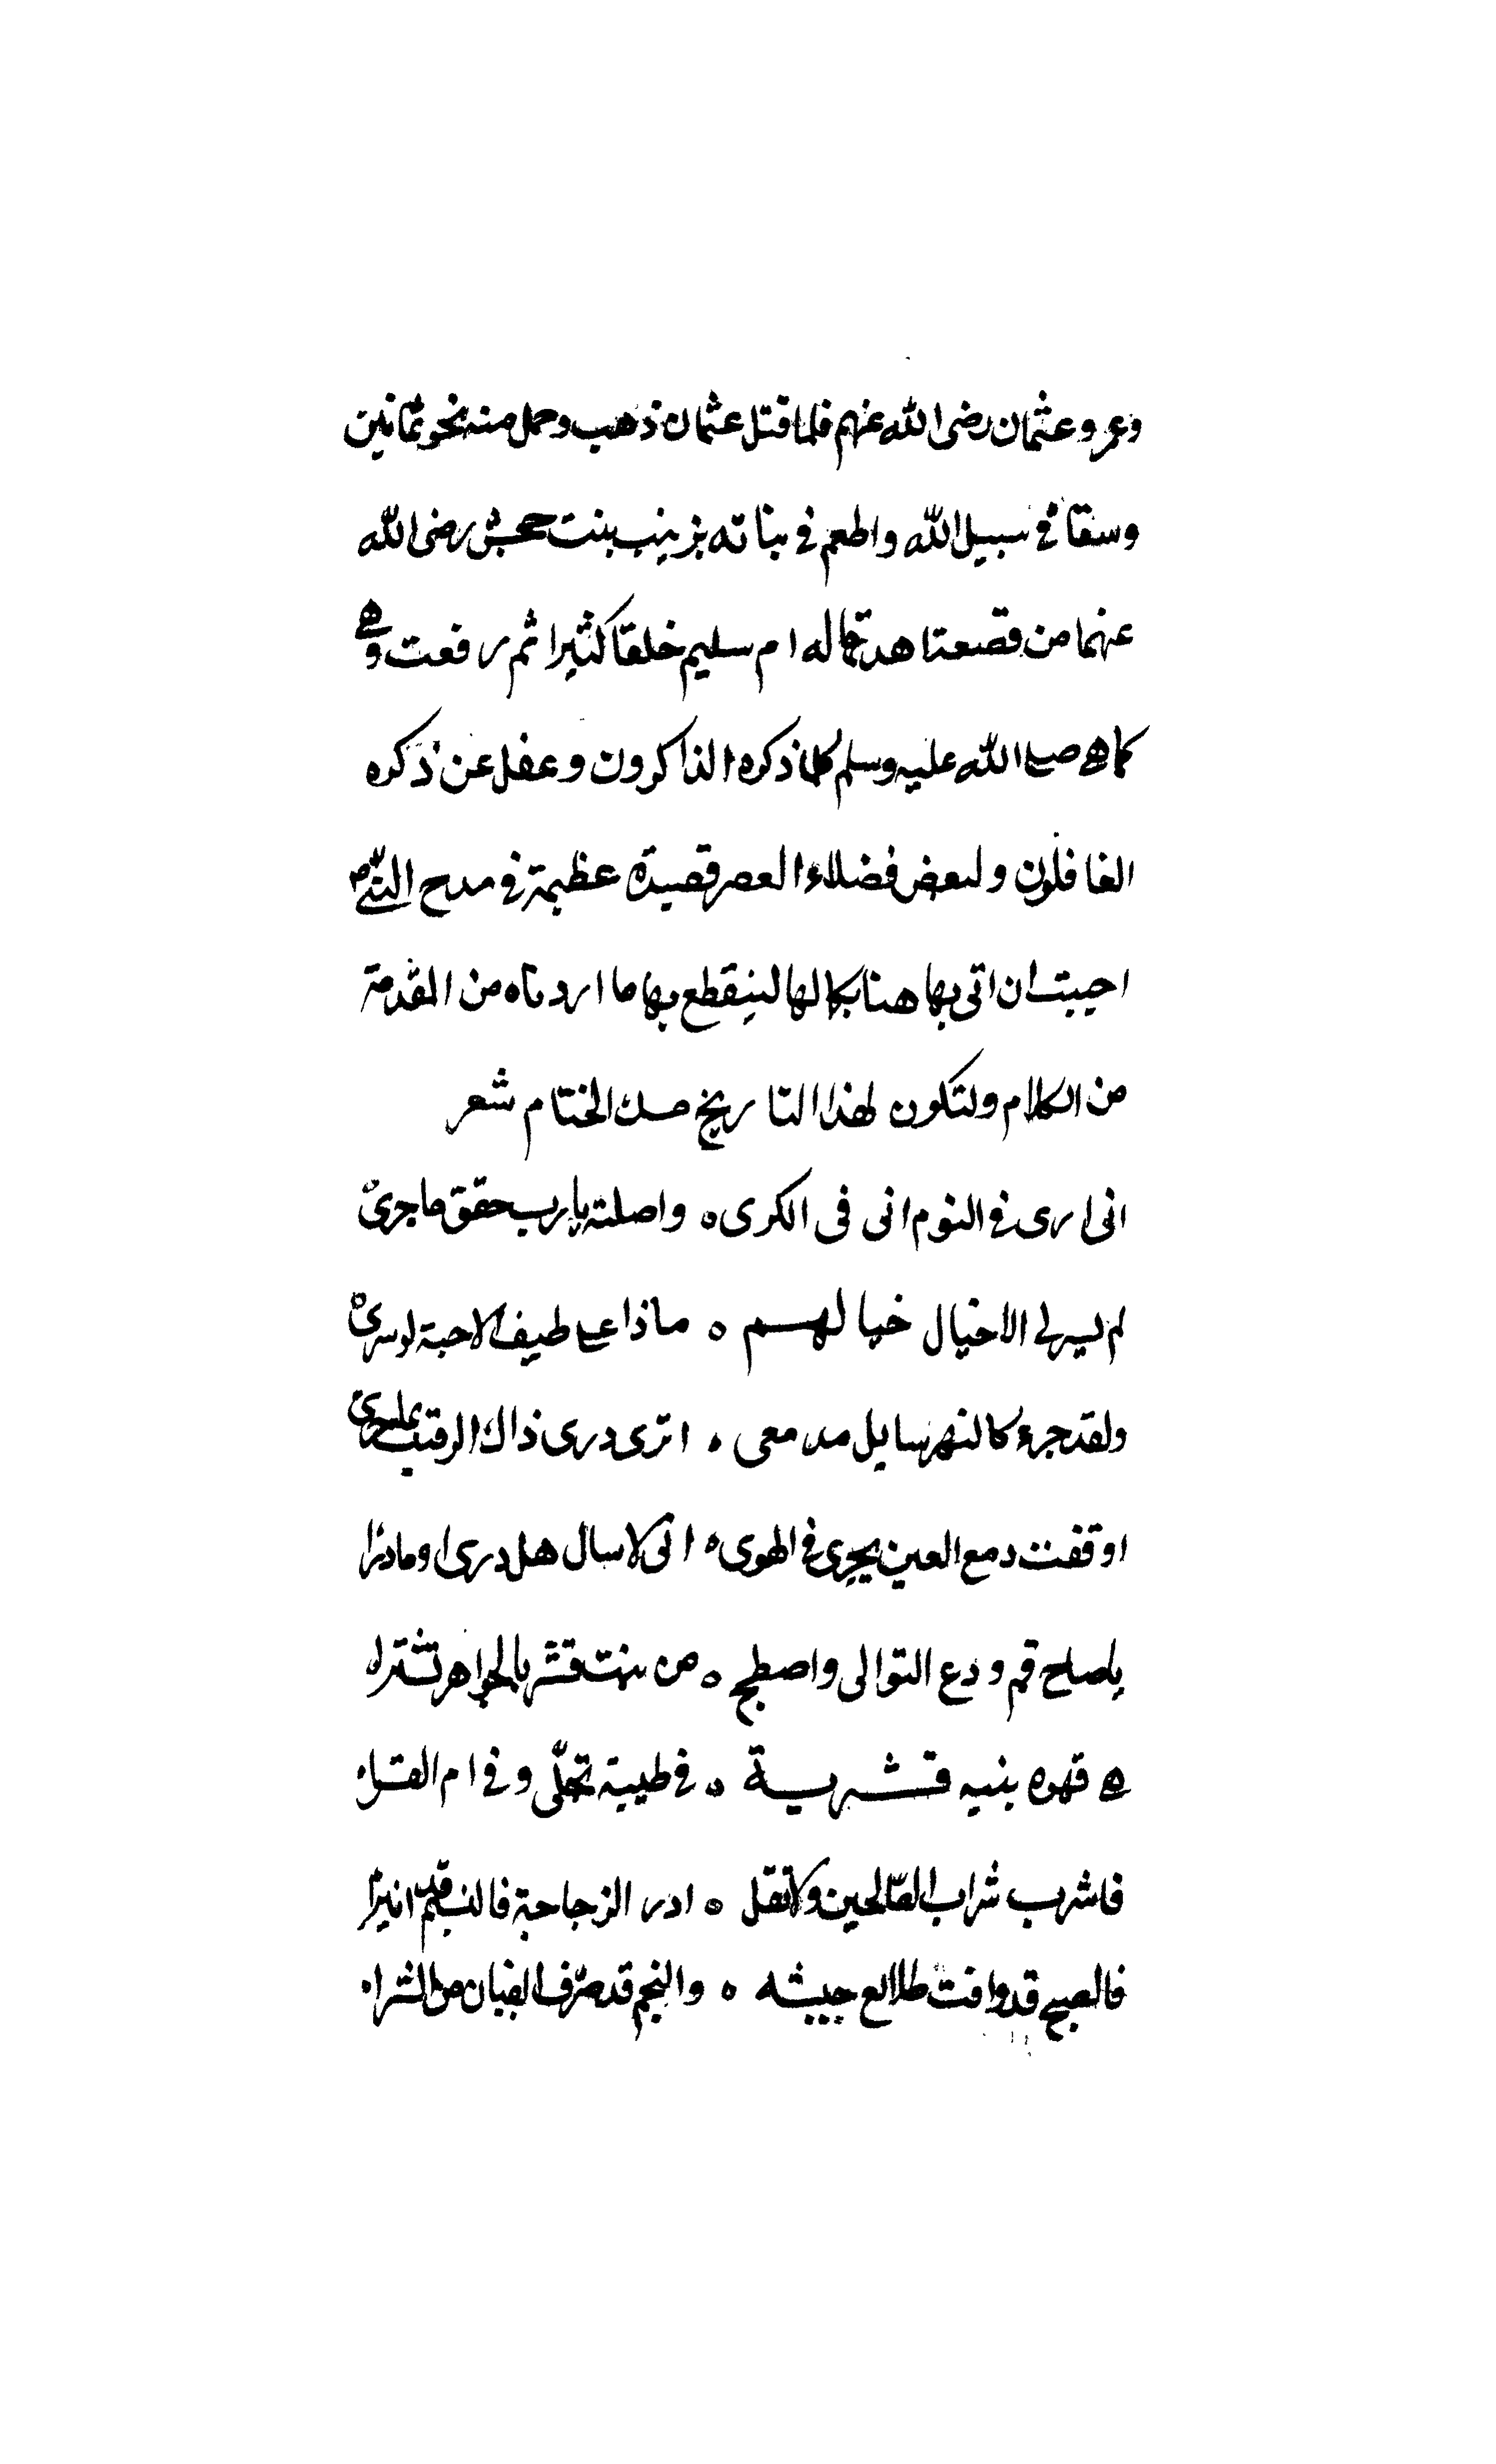 وعمر وعثمان رضى الله عنهم فلما قتل عثمان ذهب وحمل منه نحو ثمانين
وسقا فى سبيل الله واطعم فى بنائه بزينب بنت جحش رضى الله
عنهما من قصعة اهدتها له ام سليم خلقا كثيرا ثم رفعت وهى
كما هى صلى الله عليه وسلم كلما ذكره الذاكرون وغفل عن ذكره
الغافلون ولبعض فضلاء العصر قصيدة عظيمة فى مدح النبى ص
احببت ان اتى بها هنا بكمالها لينقطع بها ما اردناه من المقدمة
من الكلام ولتكون لهذا التاريخ مسك الختام شعر
انى ارى فى النوم انى فى الكرى ٥ واصلته يارب حقق ما جرى ٥
لم يسر لى الاخيال خيالهم ٥ ماذا على طيف الاحبة لو سرى ٥
ولقد جرى كالنهر سايل مدمعى ٥ اترى درى ذاك الرقيب بما جرى
اوقفت دمع العين يجرى فى الهوى ٥ انى لاسال هل درى او ما درا
ياصاح قم ودع التوالى واصطبح ٥ من بنت قشر بالجواهر تشترا
هى قهوه بنيه قشرية ٥ فى طيبة تجلّى وفى ام القرا
فاشرب شراب الصّالحين ولا تقل ٥ ادر الزجاجة فالنسيم قد انبرا
فالصبح قد وافت طلائع جيشه ٥ والنجم قد صرف العنان من السرا